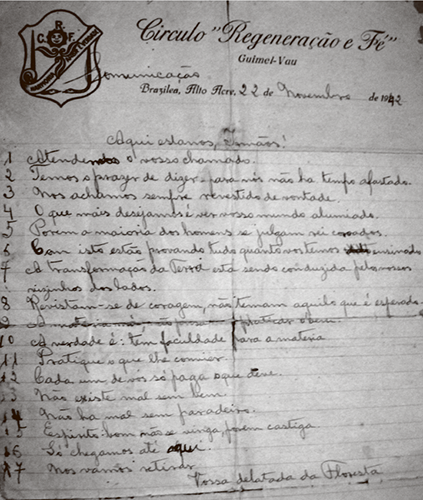 C. R. F.
Circulo "Regeneração e Fé"
Guimel-Vau
Comunicação
Brazilea, Alto Acre, 22 de Novembro de 1942
Aqui estamos, Irmãos!
1 Atendendo o vosso chamado.
2 Temos o prazer de dizer, para nós não ha tempo afastado.
3 Nos achamos sempre revestido de vontade.
4 O que mais desejamos é ver vosso mundo alumiado.
5 Porem a maioria dos homens se julgam rei coroados.
6 Com isto estão provando tudo quanto vos temos ensinado
7 A transformação da Terra está sendo conduzida pelos vossos
visinhos dos lados.
8 Revistam-se de coragem, não temam aquilo que é esperado.
9 A materia má não
10 A verdade é: tem faculdade para a materia
11 Pratique o que lhe convier.
12 Cada um de vós só paga o que deve.
13 Não existe mal sem bem.
14 Não ha mal sem paradeiro.
15 Espirito bom não se vinga, porem castiga
16 Só chegamos até aqui.
17 Nos vamos retirar
Vossa da Floresta